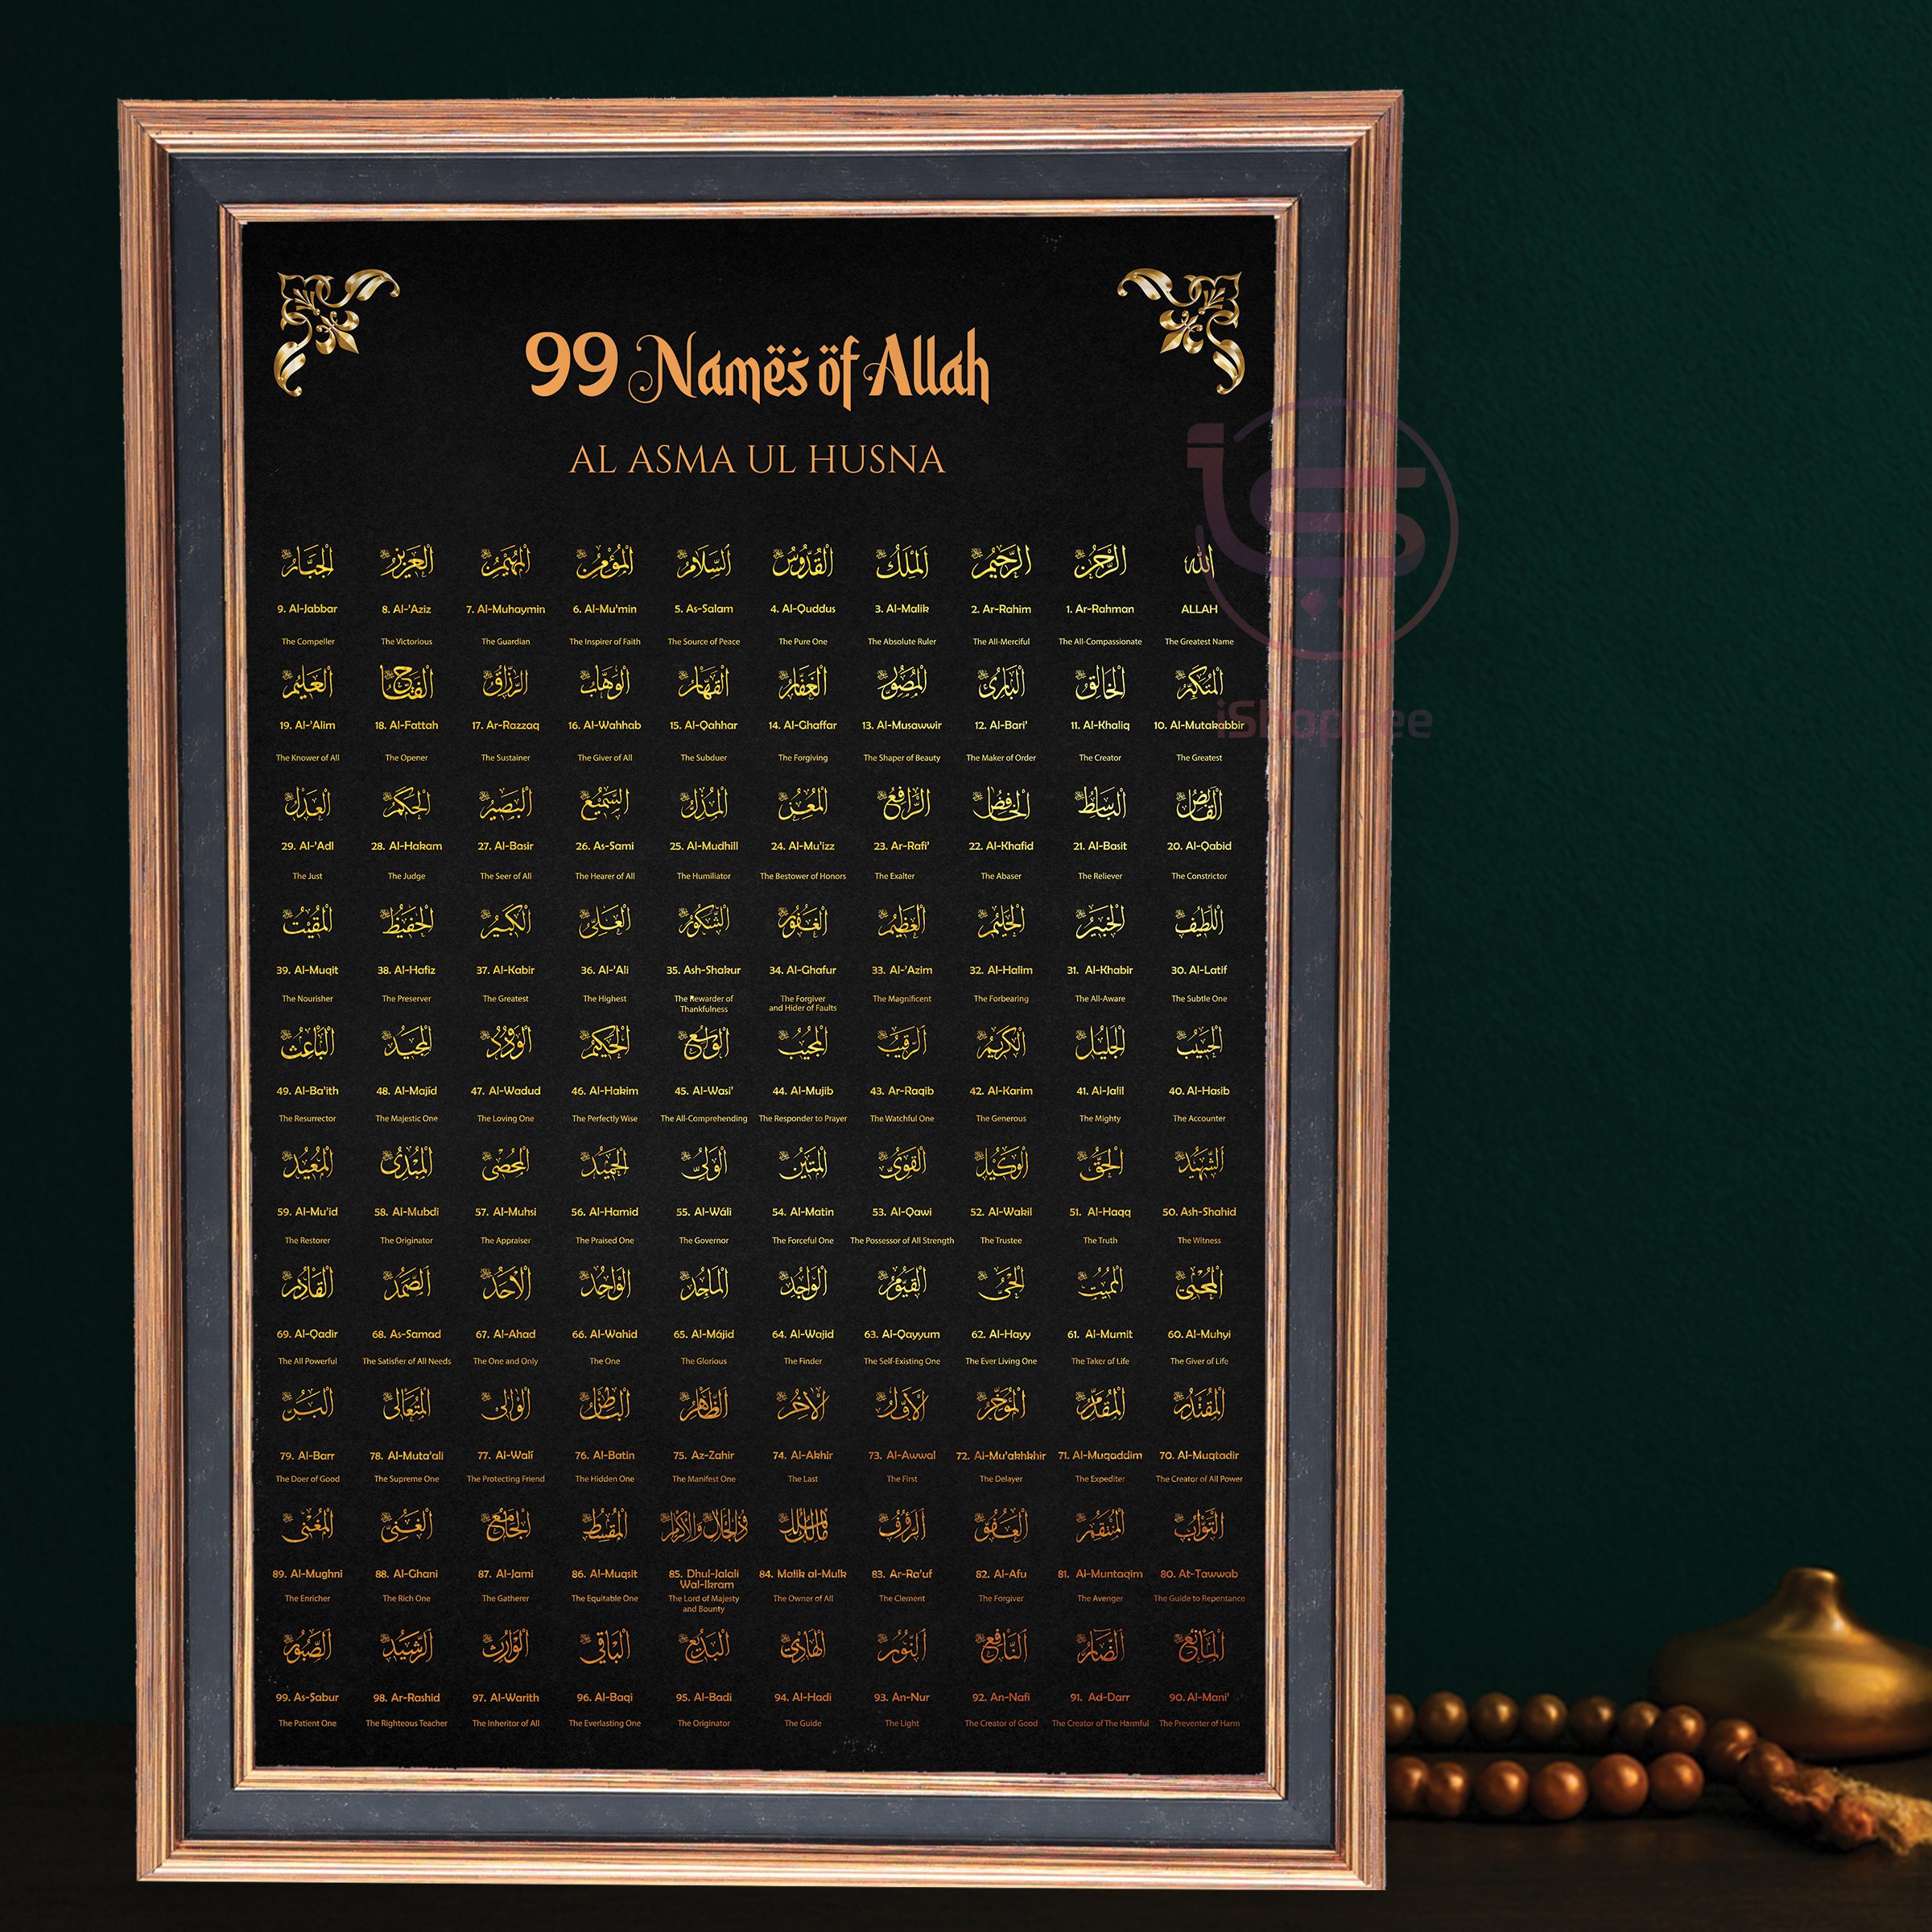 99 Names of Allah
AL ASMA UL HUSNA
الله الرَّحْمٰنُ الرَّحِيْمُ اَلْمَلِكُ الْقُدُّوْسُ اَلسَّلَامُ الْمُؤْمِنُ الْمُهَيْمِنُ الْعَزِيْزُ الْجَبَّارُ
ALLAH 1. Ar-Rahman 2. Ar-Rahim 3. Al-Malik 4. Al-Quddus 5. As-Salam 6. Al-Mu'min 7. Al-Muhaymin 8. Al-'Aziz 9. Al-Jabbar
The Greatest Name The All-Compassionate The All-Merciful The Absolute Ruler The Pure One The Source of Peace The Inspirer of Faith The Guardian The Victorious The Compeller
الْمُتَكَبِّرُ الْخَالِقُ الْبَارِئُ الْمُصَوِّرُ الْغَفَّارُ الْقَهَّارُ الْوَهَّابُ الرَّزَّاقُ الْفَتَّاحُ الْعَلِيْمُ
10. Al-Mutakabbir 11. Al-Khaliq 12. Al-Bari' 13. Al-Musawwir 14. Al-Ghaffar 15. Al-Qahhar 16. Al-Wahhab 17. Ar-Razzaq 18. Al-Fattah 19. Al-'Alim
The Greatest The Creator The Maker of Order The Shaper of Beauty The Forgiving The Subduer The Giver of All The Sustainer The Opener The Knower of All
الْقَابِضُ الْبَاسِطُ الْخَافِضُ الرَّافِعُ الْمُعِزُّ الْمُذِلُّ السَّمِيْعُ الْبَصِيْرُ الْحَكَمُ الْعَدْلُ
20. Al-Qabid 21. Al-Basit 22. Al-Khafid 23. Ar-Rafi' 24. Al-Mu'izz 25. Al-Mudhill 26. As-Sami 27. Al-Basir 28. Al-Hakam 29. Al-'Adl
The Constrictor The Reliever The Abaser The Exalter The Bestower of Honors The Humiliator The Hearer of All The Seer of All The Judge The Just
اللَّطِيْفُ الْخَبِيْرُ الْحَلِيْمُ الْعَظِيْمُ الْغَفُوْرُ الشَّكُوْرُ الْعَلِيُّ الْكَبِيْرُ الْحَفِيْظُ الْمُقِيْتُ
30. Al-Latif 31. Al-Khabir 32. Al-Halim 33. Al-'Azim 34. Al-Ghafur 35. Ash-Shakur 36. Al-'Ali 37. Al-Kabir 38. Al-Hafiz 39. Al-Muqit
The Subtle One The All-Aware The Forbearing The Magnificent The Forgiver and Hider of Faults The Rewarder of Thankfulness The Highest The Greatest The Preserver The Nourisher
الْحَسِيْبُ الْجَلِيْلُ الْكَرِيْمُ الرَّقِيْبُ الْمُجِيْبُ الْوَاسِعُ الْحَكِيْمُ الْوَدُوْدُ الْمَجِيْدُ الْبَاعِثُ
40. Al-Hasib 41. Al-Jalil 42. Al-Karim 43. Ar-Raqib 44. Al-Mujib 45. Al-Wasi' 46. Al-Hakim 47. Al-Wadud 48. Al-Majíd 49. Al-Ba'ith
The Accounter The Mighty The Generous The Watchful One The Responder to Prayer The All-Comprehending The Perfectly Wise The Loving One The Majestic One The Resurrector
الشَّهِيْدُ الْحَقُّ الْوَكِيْلُ الْقَوِيُّ الْمَتِيْنُ الْوَلِيُّ الْحَمِيْدُ الْمُحْصِي الْمُبْدِئُ الْمُعِيْدُ
50. Ash-Shahid 51. Al-Haqq 52. Al-Wakil 53. Al-Qawi 54. Al-Matin 55. Al-Wáli 56. Al-Hamid 57. Al-Muhsi 58. Al-Mubdi 59. Al-Mu'id
The Witness The Truth The Trustee The Possessor of All Strength The Forceful One The Governor The Praised One The Appraiser The Originator The Restorer
الْمُحْيِي الْمُمِيْتُ الْحَيُّ الْقَيُّوْمُ الْوَاجِدُ الْمَاجِدُ الْوَاحِدُ الْاَحَدُ الصَّمَدُ الْقَادِرُ
60. Al-Muhyi 61. Al-Mumit 62. Al-Hayy 63. Al-Qayyum 64. Al-Wajid 65. Al-Májid 66. Al-Wahid 67. Al-Ahad 68. As-Samad 69. Al-Qadir
The Giver of Life The Taker of Life The Ever Living One The Self-Existing One The Finder The Glorious The One The One and Only The Satisfier of All Needs The All Powerful
الْمُقْتَدِرُ الْمُقَدِّمُ الْمُؤَخِّرُ الْاَوَّلُ الْاٰخِرُ الظَّاهِرُ الْبَاطِنُ الْوَالِي الْمُتَعَالِي الْبَرُّ
70. Al-Muqtadir 71. Al-Muqaddim 72. Al-Mu'akhkhir 73. Al-Awwal 74. Al-Akhir 75. Az-Zahir 76. Al-Batin 77. Al-Walí 78. Al-Muta'ali 79. Al-Barr
The Creator of All Power The Expediter The Delayer The First The Last The Manifest One The Hidden One The Protecting Friend The Supreme One The Doer of Good
التَّوَّابُ الْمُنْتَقِمُ الْعَفُوُّ الرَّؤُوْفُ مَالِكُ الْمُلْكِ ذُوالْجَلَالِ وَالْاِكْرَامِ الْمُقْسِطُ الْجَامِعُ الْغَنِيُّ الْمُغْنِي
80. At-Tawwab 81. Al-Muntaqim 82. Al-Afu 83. Ar-Ra'uf 84. Malik al-Mulk 85. Dhul-Jalali Wal-Ikram 86. Al-Muqsit 87. Al-Jami 88. Al-Ghani 89. Al-Mughni
The Guide to Repentance The Avenger The Forgiver The Clement The Owner of All The Lord of Majesty and Bounty The Equitable One The Gatherer The Rich One The Enricher
الْمَانِعُ الضَّارُّ النَّافِعُ النُّوْرُ الْهَادِي الْبَدِيْعُ الْبَاقِي الْوَارِثُ الرَّشِيْدُ الصَّبُوْرُ
90. Al-Mani' 91. Ad-Darr 92. An-Nafi 93. An-Nur 94. Al-Hadi 95. Al-Badi 96. Al-Baqi 97. Al-Warith 98. Ar-Rashid 99. As-Sabur
The Preventer of Harm The Creator of The Harmful The Creator of Good The Light The Guide The Originator The Everlasting One The Inheritor of All The Righteous Teacher The Patient One
iShoppee